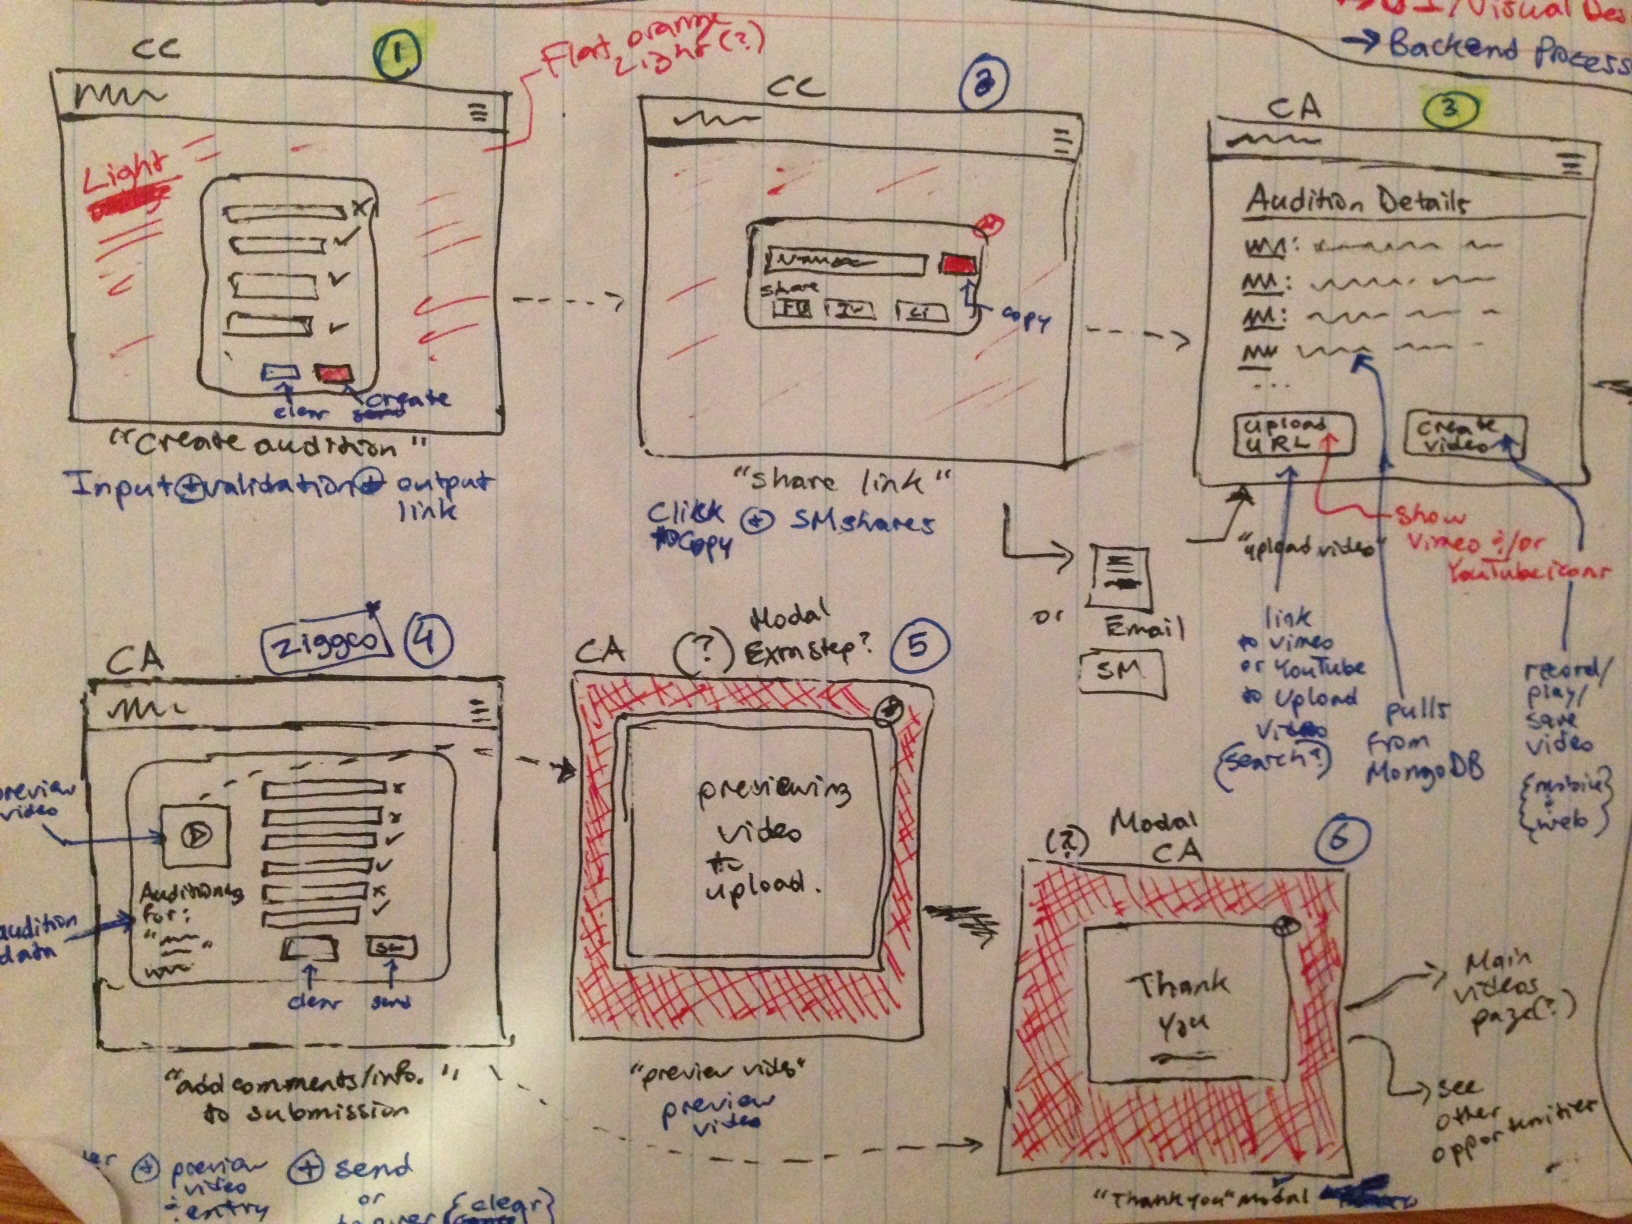 → UI/Visual Des
→ Backend Process
CC
1
Flat orange
Light(?)
Light
clear
create
send
"Create audition"
Input + validation + output
link
CC
2
share
FB
TW
LI
copy
"share link"
Click
to copy
+ SM shares
or
Email
SM
CA
3
Audition Details
...
Upload
URL
Create
video
"upload video"
show
Vimeo &/or
YouTube icons
link
to vimeo
or YouTube
to upload
video
(search?)
pulls
from
MongoDB
record/
play/
save
video
{mobile}
+
{web}
CA
ziggeo
4
preview
video
audition
data
Auditioning
for:
clear
send
"add comments/info."
to submission
+ preview
video
entry
+ send
or
{clear}
CA
(?)
Modal
Extra step?
5
previewing
video
to
upload.
"preview video"
preview
video
(?)
Modal
CA
6
Thank
You
"Thank you" modal
Main
videos
page(?)
see
other
opportunities